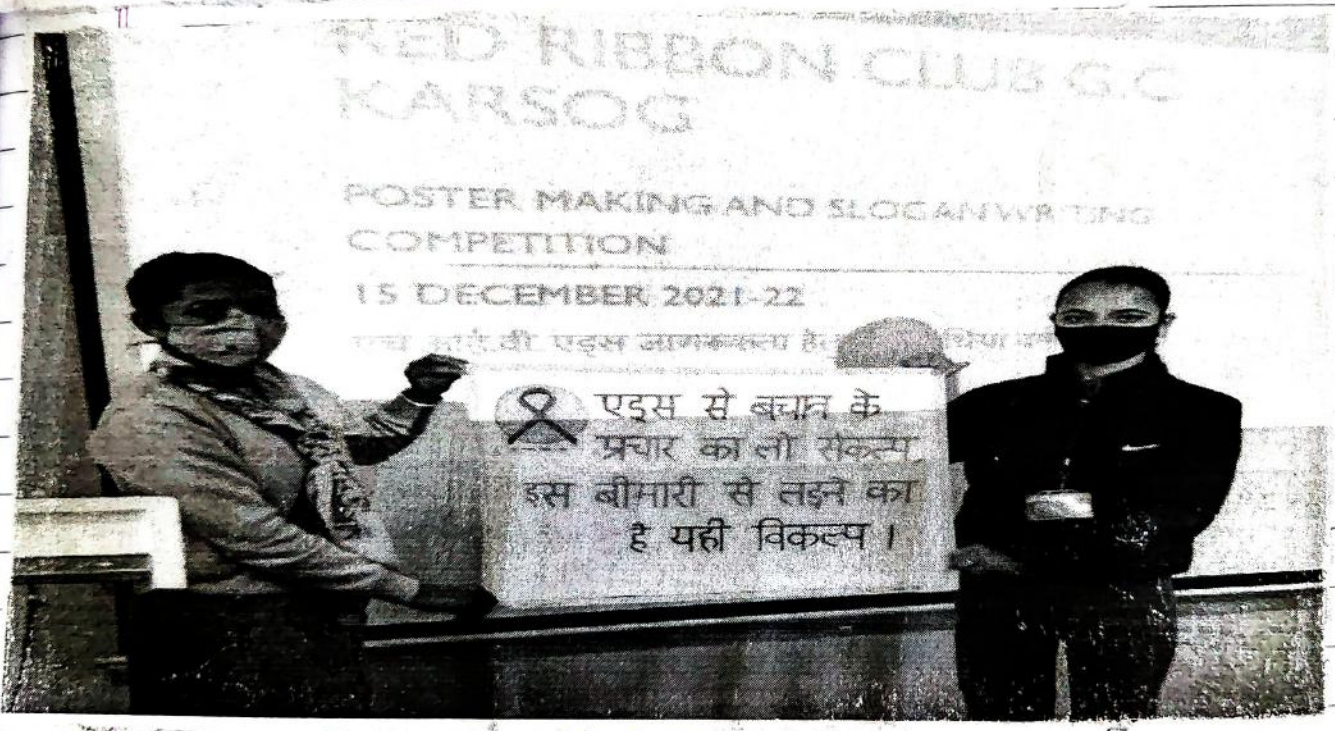 11
RED RIBBON CLUB G.C
KARSOG
POSTER MAKING AND SLOGAN WRITING
COMPETITION
15 DECEMBER 2021-22
एच आई.वी एड्स जागरूकता
एड्स से बचाव के
प्रचार का लो संकल्प
इस बीमारी से लड़ने का
है यही विकल्प ।